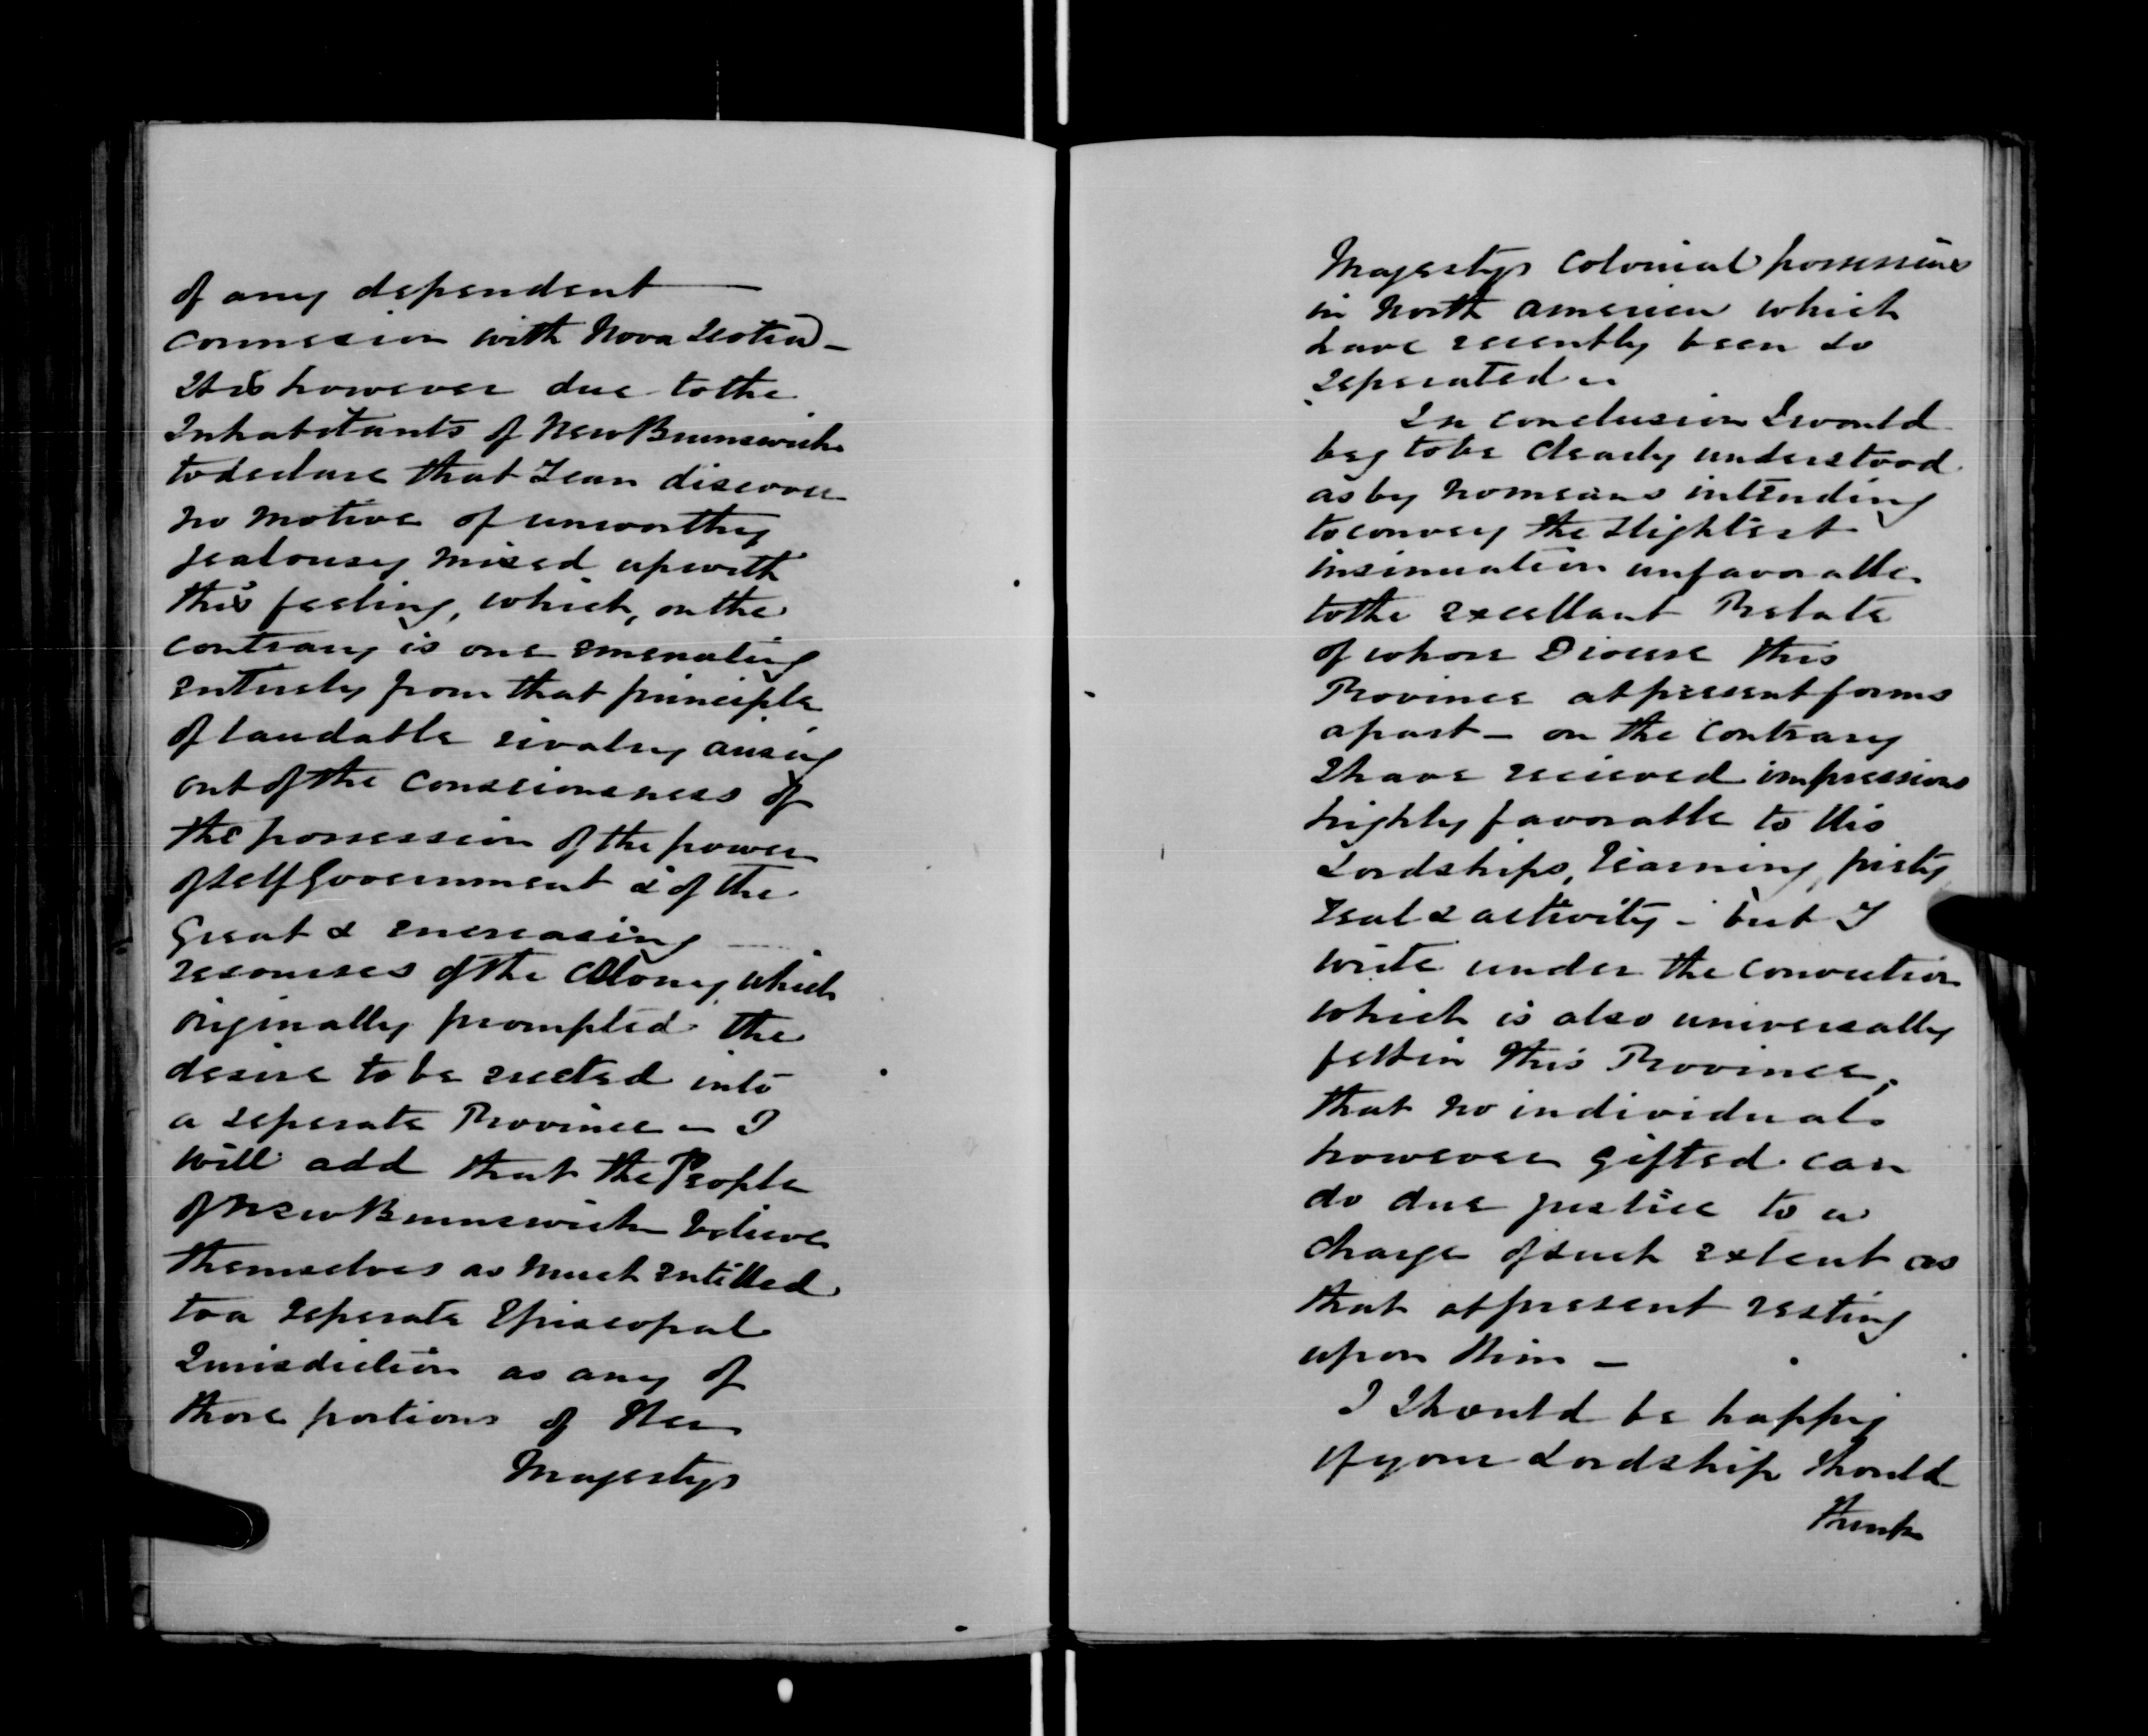 of any dependent —
connexion with Nova Scotia —
It is however due to the
Inhabitants of New Brunswick
to declare that I can discover
no motive of unworthy
jealousy mixed up with
this feeling, which, on the
contrary is one emenating
entirely from that principle
of laudable rivalry arising
out of the consciousness of
the possession of the power
of self Government & of the
great & encreasing
resources of the Colony, which
originally prompted the
desire to be erected into
a seperate Province — I
will add that the People
of New Brunswick believe
themselves as much entitled
to a seperate Episcopal
Jurisdiction as any of
those portions of Her
Majestys
Majestys Colonial possessions
in North America which
have recently been so
seperated —
In conclusion I would
beg to be clearly understood
as by no means intending
to convey the slightest
insinuation unfavorable
to the excellant Prelate
of whose Diocese this
Province at present forms
a part — on the contrary
I have recieved impressions
highly favorable to His
Lordships, learning, piety
zeal & activity — but I
write under the conviction
which is also universally
felt in this Province,
that no individual
however gifted can
do due justice to a
charge of such extent as
that at present resting
upon Him —
I should be happy
if your Lordship should
think